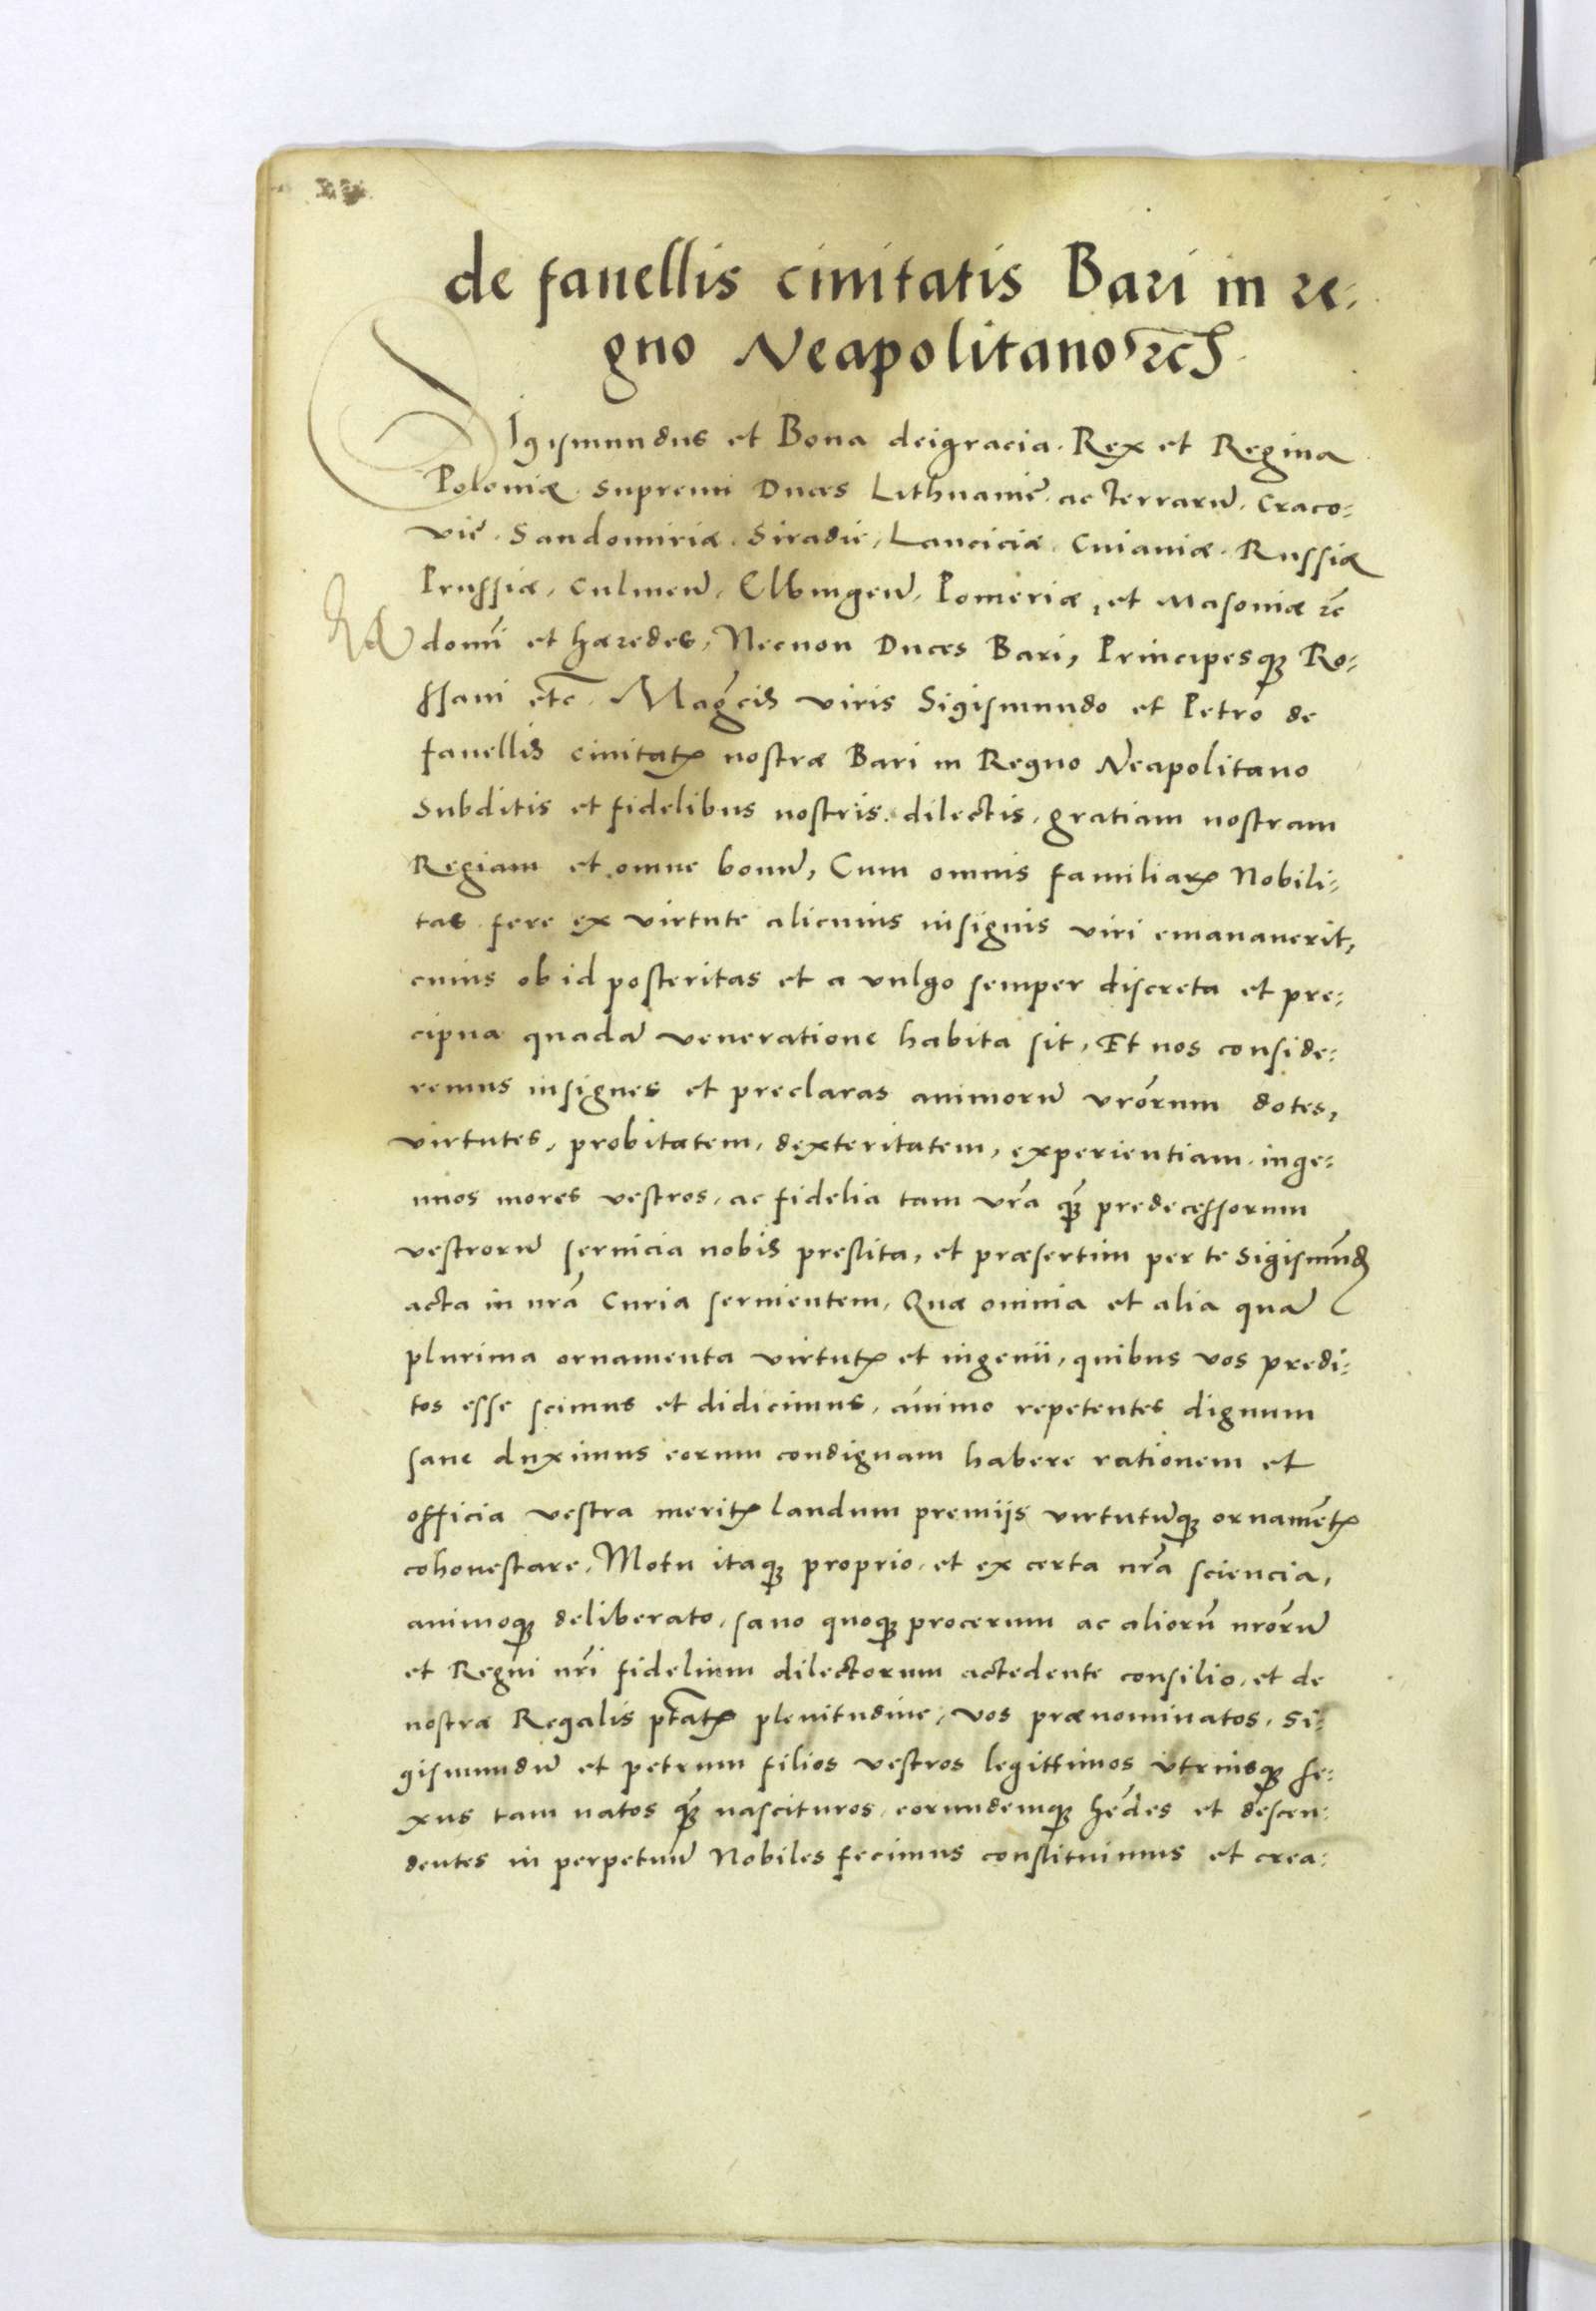 de fanellis ciuitatis Bari in re:
gno Neapolitano etc
Sigismundus et Bona deigracia. Rex et Regina
Poloniæ. Supremi Duces Lithuanie. ac Terrarū. Craco:
vie. Sandomiriæ. Siradie, Lanciciæ. Cuiauiæ. Russiæ
Prussiæ, Culmeñ. Elbingeñ. Pomeriæ, et Masouiæ etc
domi et hæredes, Necnon Duces Bari, Principesq; Ro:
ssani etc. Magcis viris Sigismundo et Petro de
fanellis ciuitatis nostræ Bari in Regno Neapolitano
Subditis et fidelibus nostris. dilectis, gratiam nostram
Regiam et omne bonū, Cum omnis familiarum Nobili:
tas fere ex virtute alicuius insignis viri emanauerit,
cuius ob id posteritas et a vulgo semper discreta et pre:
cipua quadā veneratione habita sit, Et nos conside:
remus insignes et preclaras animorū vrorum dotes,
virtutes, probitatem, dexteritatem, experientiam. inge:
nuos mores vestros, ac fidelia tam vrā q̄ predecessorum
vestrorū seruicia nobis prestita, et præsertim per te Sigismund
acta in nrā Curia seruientem, Quæ omnia et alia quā
plurima ornamenta virtutis et ingenii, quibus vos predi:
tos esse scimus et didicimus, animo repetentes dignum
sane duximus eorum condignam habere rationem et
officia vestra meritis laudum premijs virtutūq; ornamētis
cohonestare, Motu itaq; proprio, et ex certa nrā sciencia,
animoq; deliberato, sano quoq; procerum ac aliorū nrorū
et Regni nri fidelium dilectorum actedente consilio, et de
nostræ Regalis ptatis plenitudine, vos prænominatos, Si:
gismundū et petrum filios vestros legittimos vtriusq; se:
xus tam natos q̄ nascituros, eorundemq; hēdes et descen:
dentes in perpetuū Nobiles fecimus constituimus et crea: